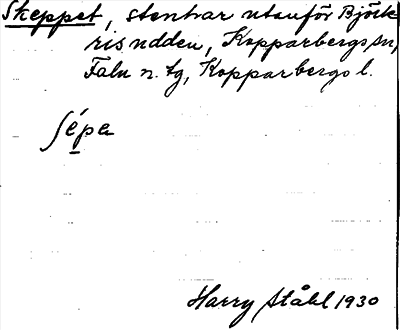 Skeppet, stenbar utanför Björk-
risudden, Kopparbergs sn,
Falu n. tg, Kopparbergs l.
Sépa
Harry Ståhl 1930